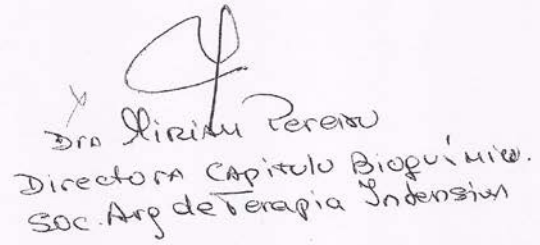 Dra Miriam Pereiro
Directora Capitulo Bioquímico.
Soc. Arg de Terapia Intensiva